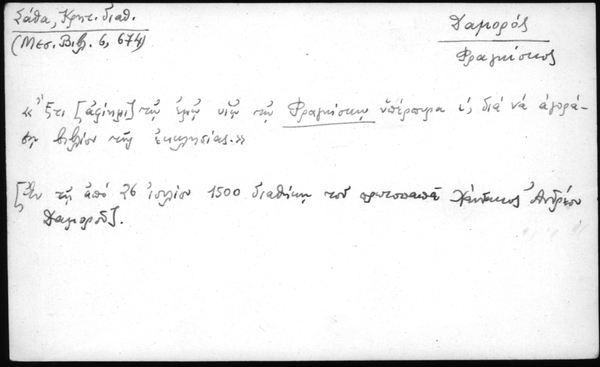 Σάθα, Κρητ. διαθ.
(Μεσ. Βιβλ. 6, 674)
Δαμορός
Φραγκίσκος
« Ἔτι [ἀφίημι] τῷ ἐμῷ υἱῷ τῷ Φραγκίσκῳ ὑπέρπυρα ι, διὰ νὰ ἀγορά-
σῃ βιβλίον τῆς ἐκκλησίας.»
[Ἐν τῇ ἀπὸ 26 ἰουλίου 1500 διαθήκῃ τοῦ πρωτοπαπᾶ Χάνδακος Ἀνδρέου
Δαμοροῦ].